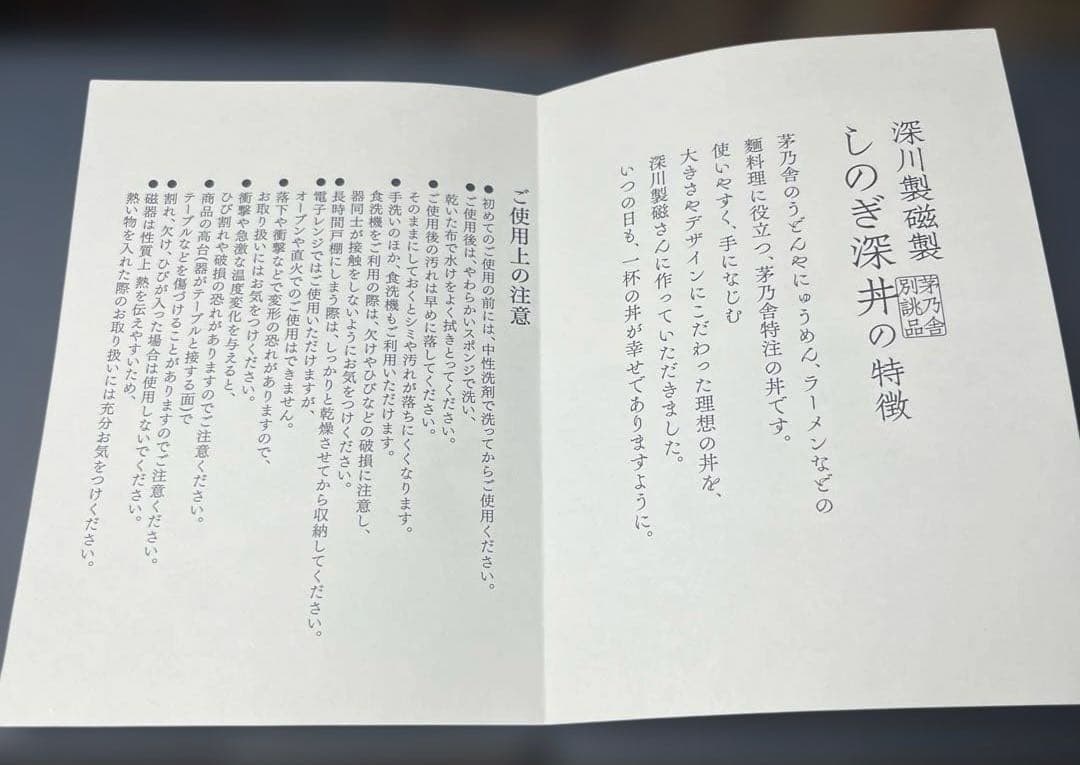 深川製磁製
茅乃舎
別誂品
しのぎ深丼の特徴
茅乃舎のうどんやにゅうめん、ラーメンなどの
麺料理に役立つ、茅乃舎特注の丼です。
使いやすく、手になじむ
大きさやデザインにこだわった理想の丼を、
深川製磁さんに作っていただきました。
いつの日も、一杯の丼が幸せでありますように。
ご使用上の注意
●初めてのご使用の前には、中性洗剤で洗ってからご使用ください。
●ご使用後は、やわらかいスポンジで洗い、
乾いた布で水けをよく拭きとってください。
●ご使用後の汚れは早めに落してください。
そのままにしておくとシミや汚れが落ちにくくなります。
●手洗いのほか、食洗機もご利用いただけます。
食洗機をご利用の際は、欠けやひびなどの破損に注意し、
器同士が接触をしないようにお気をつけください。
●長時間戸棚にしまう際は、しっかりと乾燥させてから収納してください。
●電子レンジではご使用いただけますが、
オーブンや直火でのご使用はできません。
●落下や衝撃などで変形の恐れがありますので、
お取り扱いにはお気をつけください。
●衝撃や急激な温度変化を与えると、
ひび割れや破損の恐れがありますのでご注意ください。
●商品の高台(器がテーブルと接する面)で
テーブルなどを傷づけることがありますのでご注意ください。
●割れ、欠け、ひびが入った場合は使用しないでください。
●磁器は性質上 熱を伝えやすいため、
熱い物を入れた際のお取り扱いには充分お気をつけください。